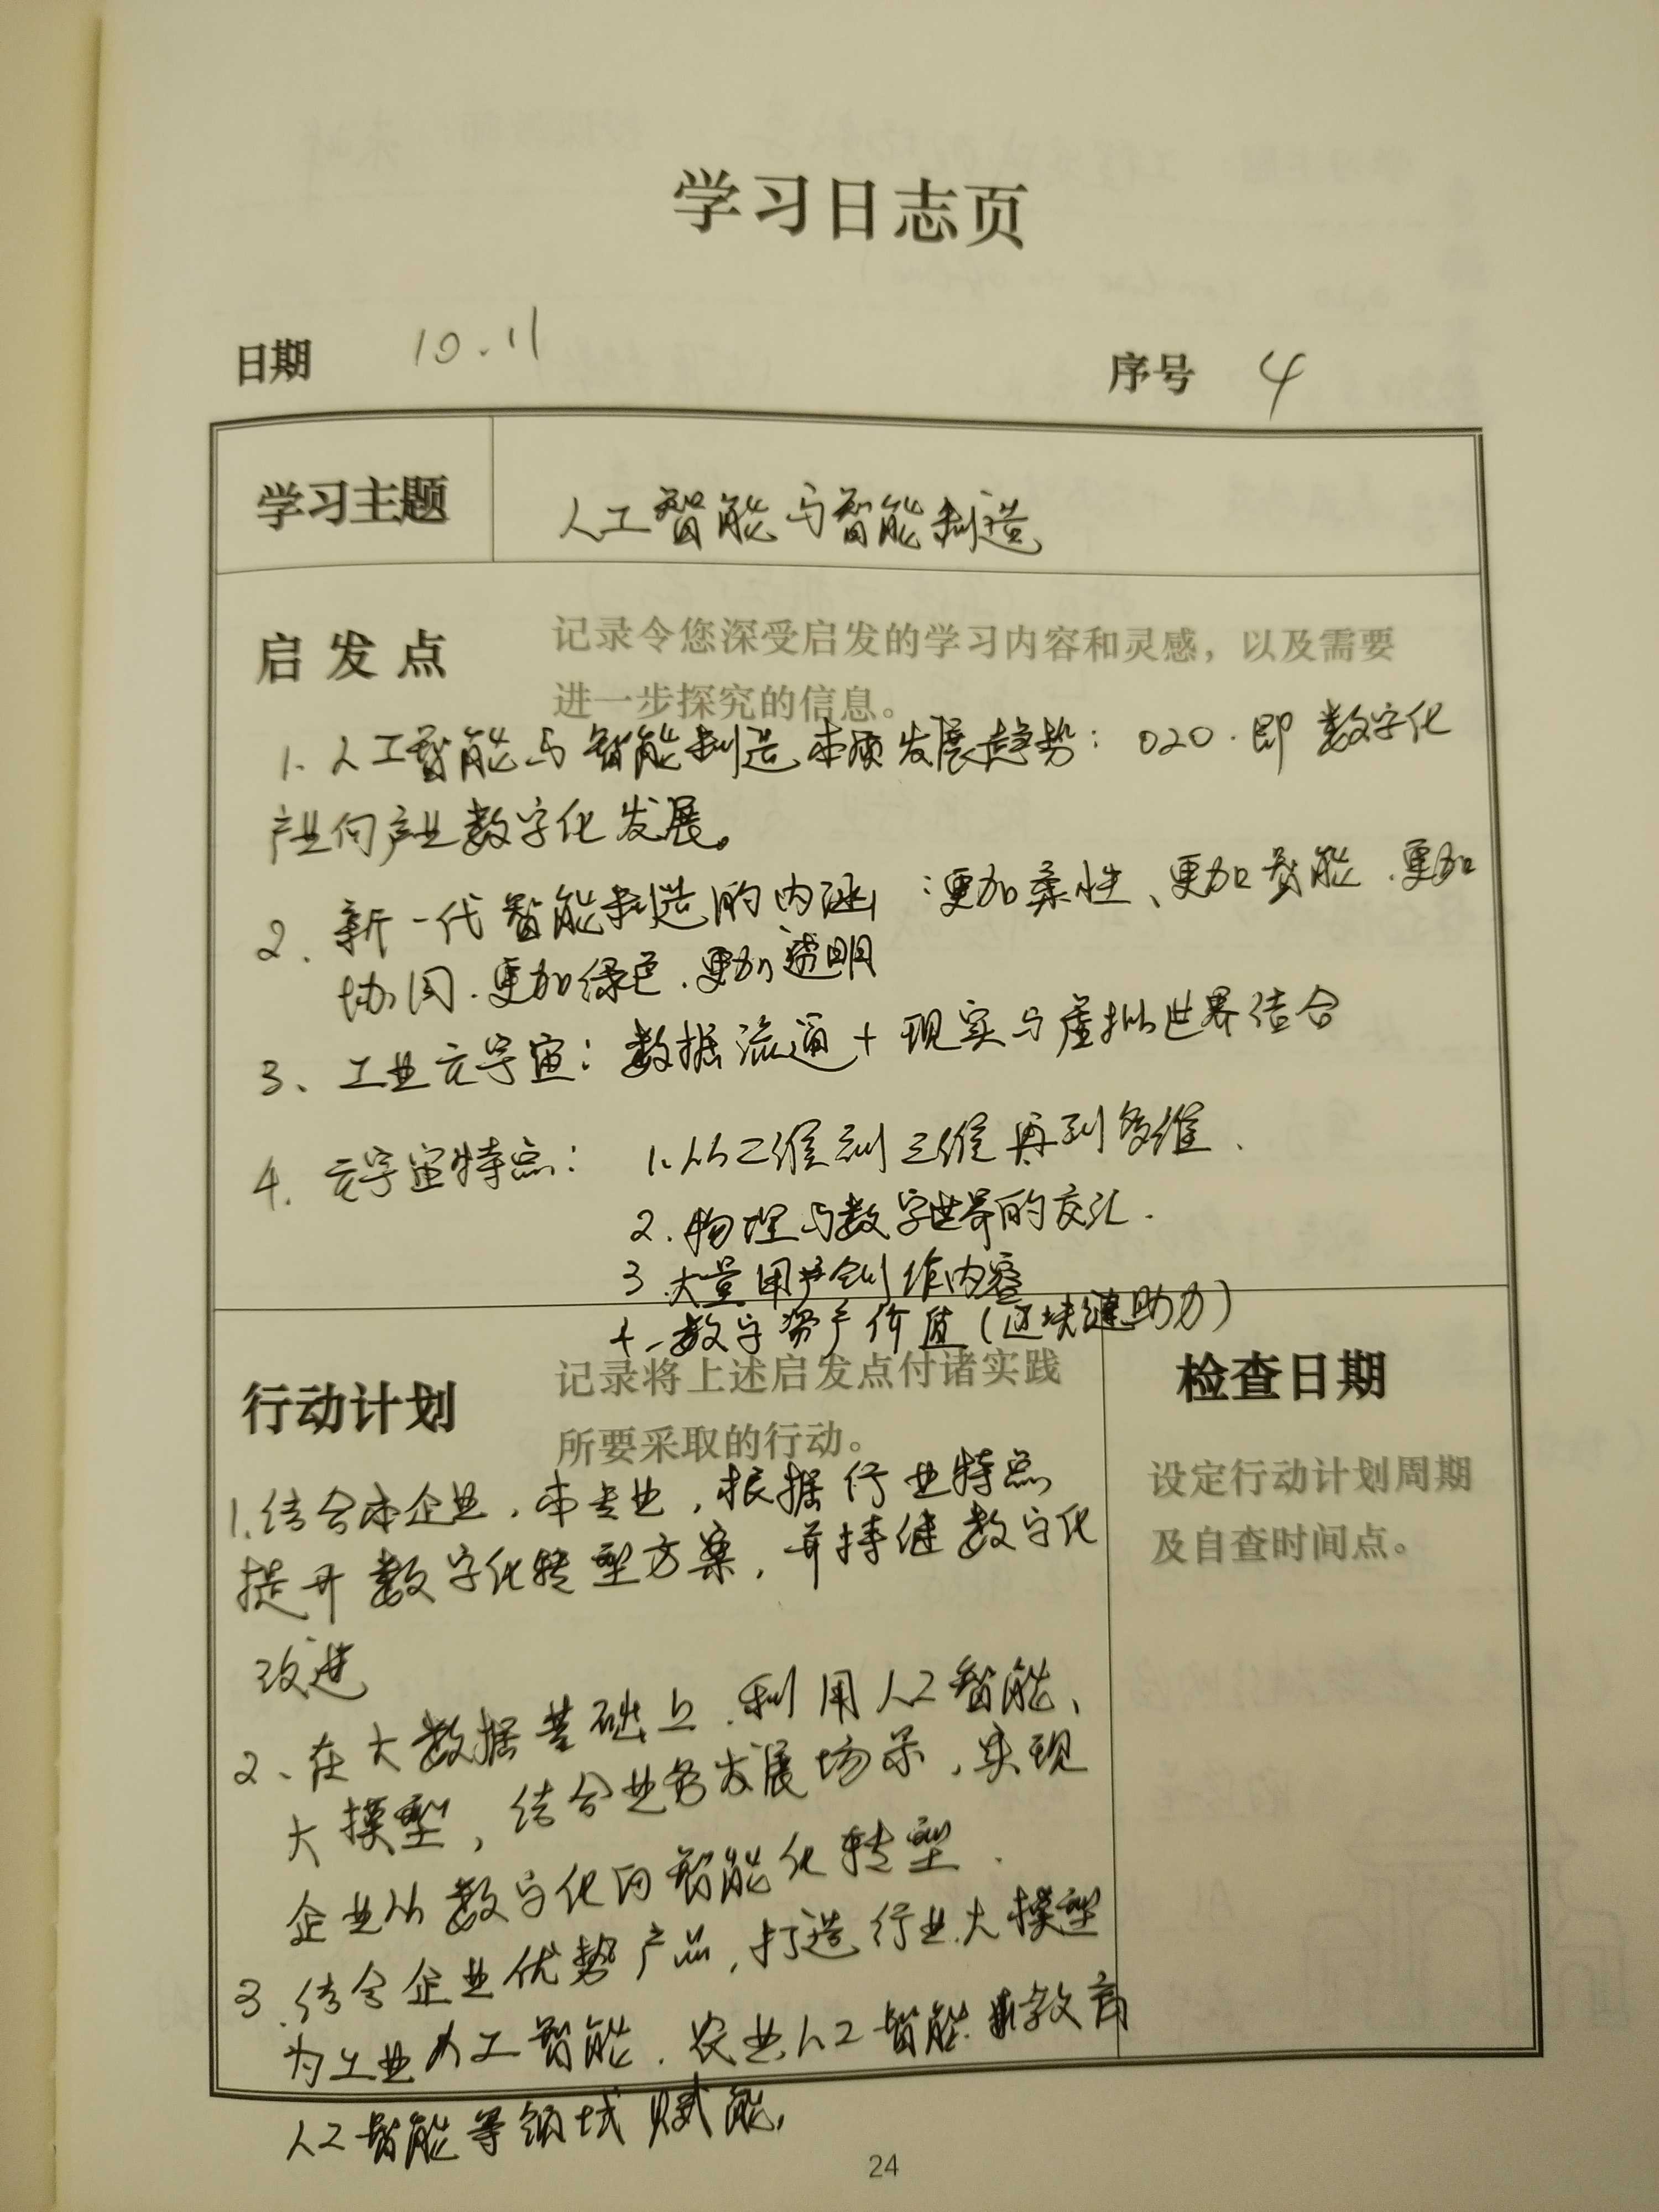 学习日志页
日期 10.11 序号 4
学习主题 人工智能与智能制造
启发点 记录令您深受启发的学习内容和灵感，以及需要
进一步探究的信息。
1. 人工智能与智能制造本质发展趋势：O2O.即数字化
产业向产业数字化发展。
2. 新一代智能制造的内涵：更加柔性、更加智能.更加
协同.更加绿色.更加透明
3、工业元宇宙：数据流通+现实与虚拟世界结合
4. 元宇宙特点：1.从二维到三维再到多维、
2.物理与数字世界的交汇.
3.大量用户创作内容
4、数字资产价值(区块链助力)
行动计划 记录将上述启发点付诸实践
所要采取的行动。
检查日期
设定行动计划周期
及自查时间点。
1.结合本企业，本专业，根据行业特点
提升数字化转型方案，并持续数字化
改进
2、在大数据基础上.利用人工智能、
大模型，结合业务发展场景，实现
企业从数字化向智能化转型.
3.结合企业优势产品，打造行业大模型
为工业人工智能.农业人工智能.教育
人工智能等领域赋能.
24